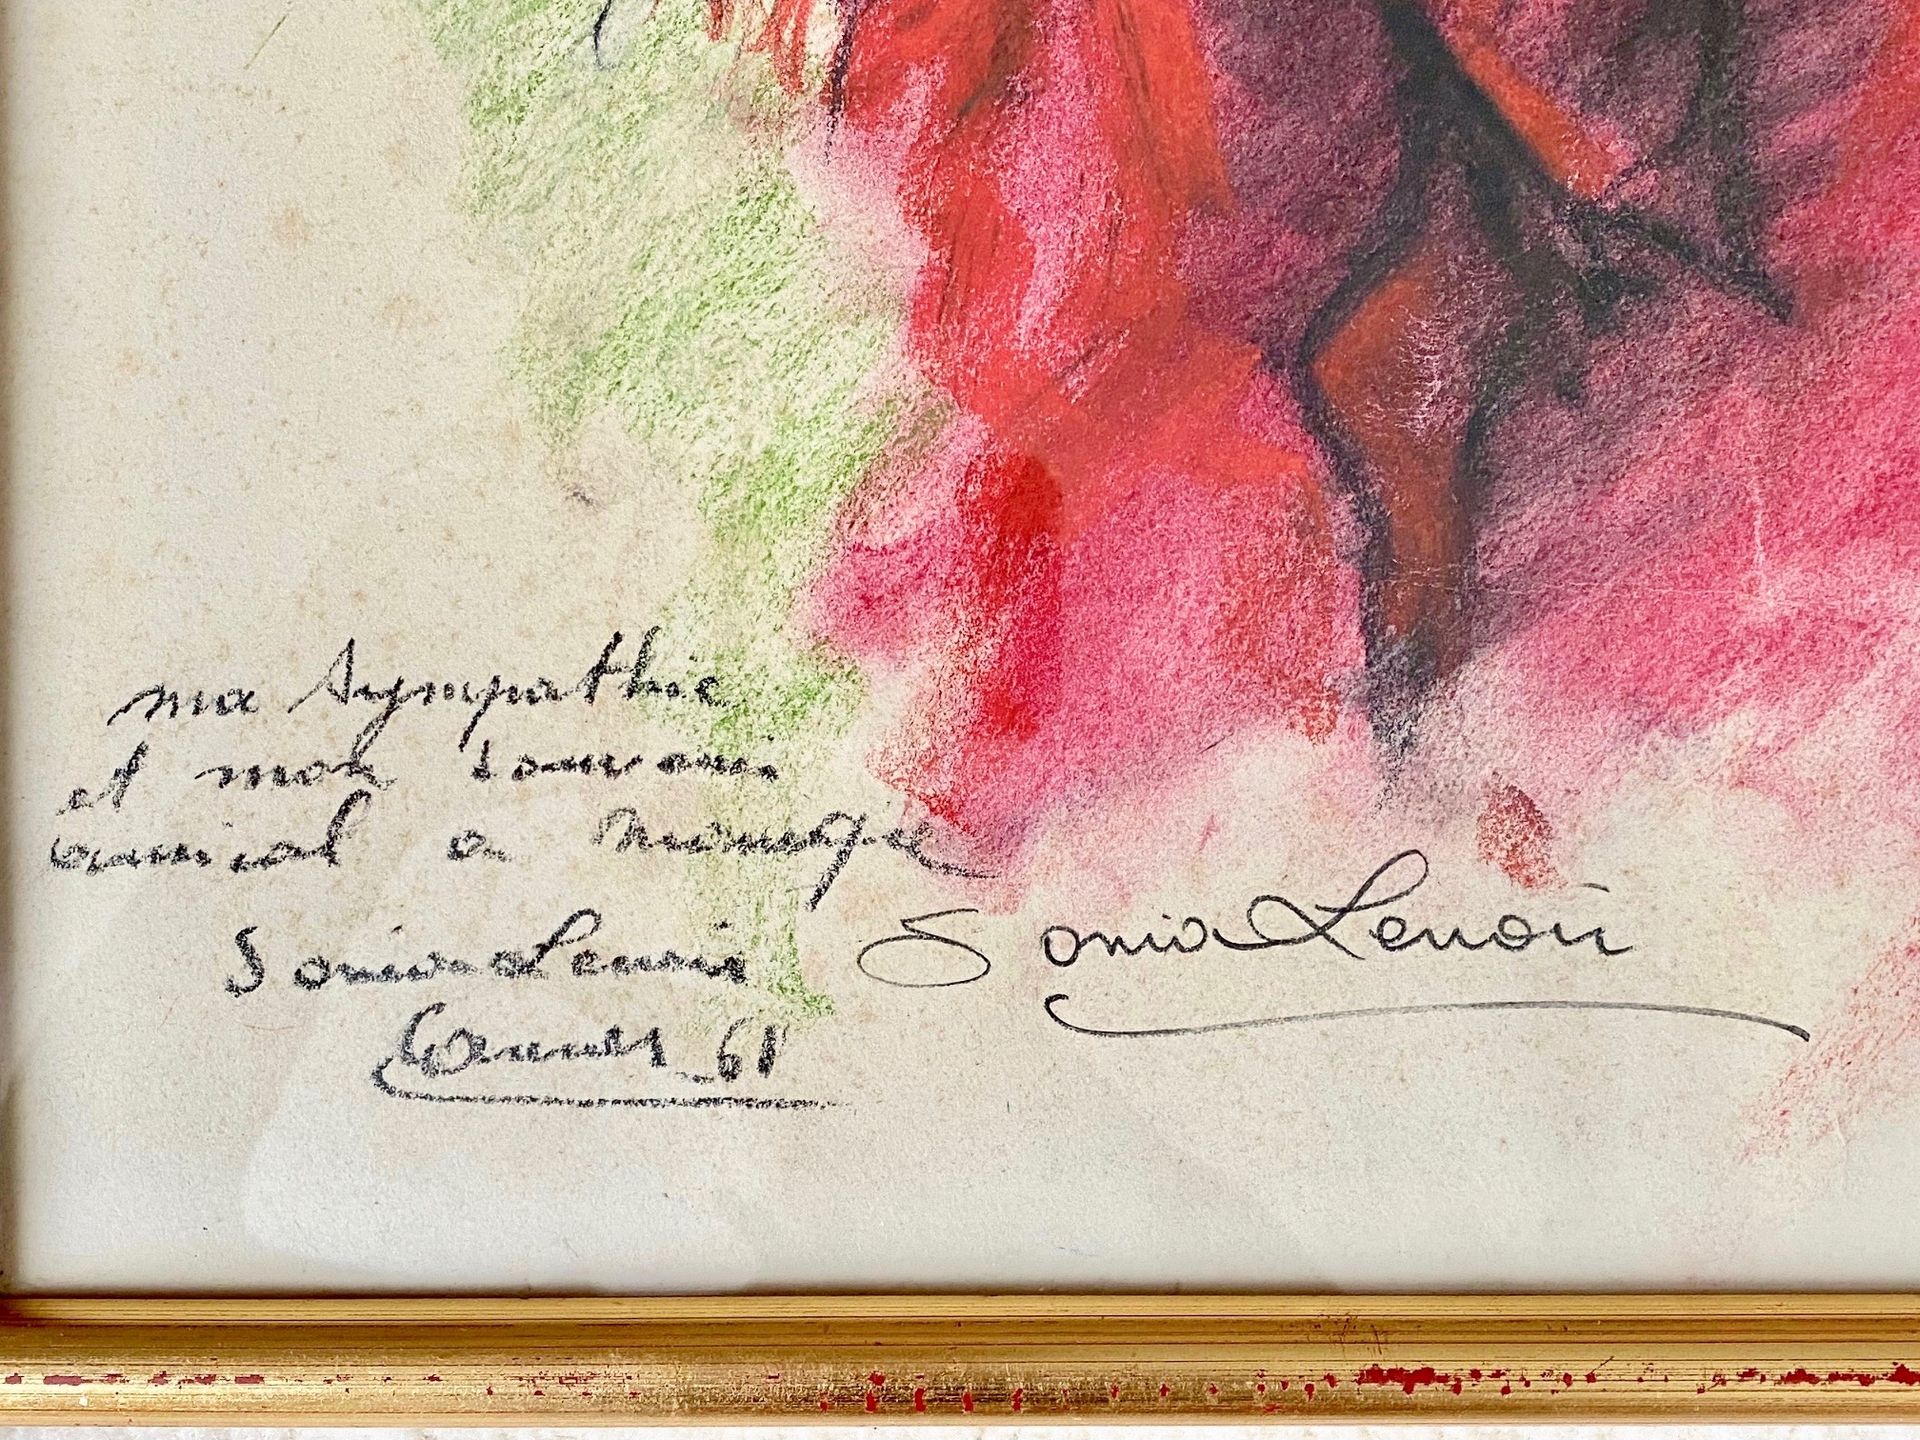 ma sympathie
et mon souvenir
amical a Monique
Sonia Lenoir
Cannes 61
Sonia Lenoir